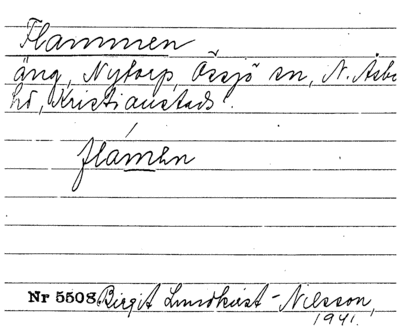 Flammen
äng, Nytorp, Össjö sn, N. Åsbo
hd, Kristianstads.
flámɛn
Nr 5508 Birgit Lundkvist-Nilsson,
1941.